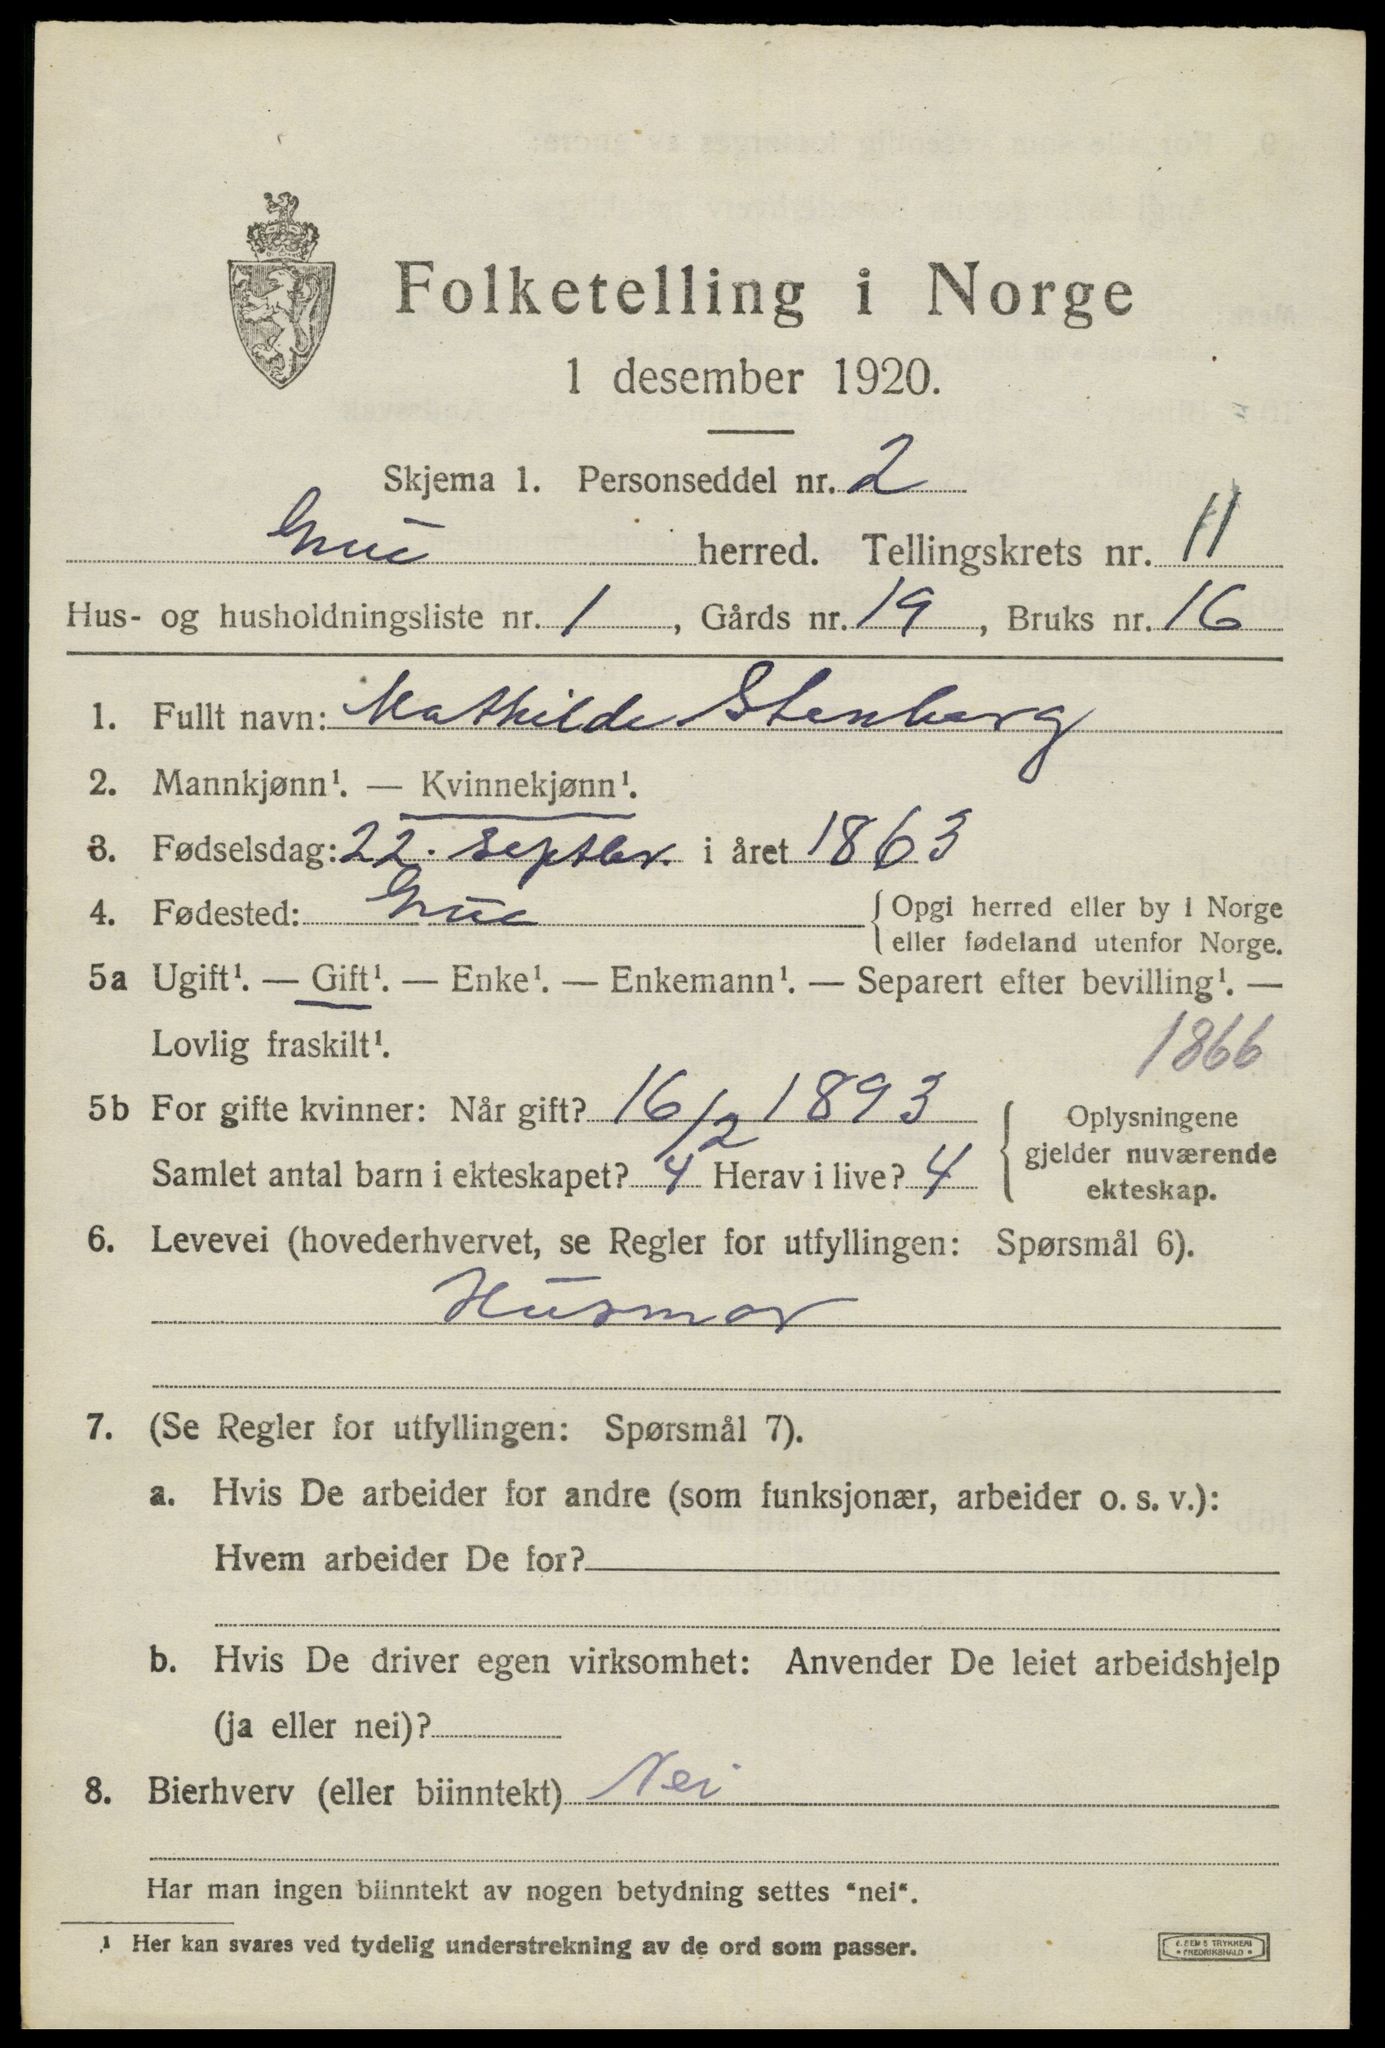 Folketelling i Norge
1 desember 1920.
Skjema 1. Personseddel nr. 2
Grue herred. Tellingskrets nr. 11
Hus- og husholdningsliste nr. 1, Gårds nr. 19, Bruks nr. 16
1. Fullt navn: Mathilde Stenberg
2. Mannkjønn¹. — Kvinnekjønn¹.
3. Fødselsdag: 22. septbr. i året 1863
4. Fødested: Grue {Opgi herred eller by i Norge
eller fødeland utenfor Norge.
5a Ugift¹. — Gift¹. — Enke¹. — Enkemann¹. — Separert efter bevilling¹. —
Lovlig fraskilt¹. 1866
5b For gifte kvinner: Når gift? 16/2 1893
Samlet antal barn i ekteskapet? 4 Herav i live? 4
{Oplysningene
gjelder nuværende
ekteskap.
6. Levevei (hovederhvervet, se Regler for utfyllingen: Spørsmål 6).
Husmor
7. (Se Regler for utfyllingen: Spørsmål 7).
a. Hvis De arbeider for andre (som funksjonær, arbeider o. s. v.):
Hvem arbeider De for?
b. Hvis De driver egen virksomhet: Anvender De leiet arbeidshjelp
(ja eller nei)?
8. Bierhverv (eller biinntekt) Nei
Har man ingen biinntekt av nogen betydning settes "nei".
¹ Her kan svares ved tydelig understrekning av de ord som passer.
TRYKKERI
FREDRIKSHALD